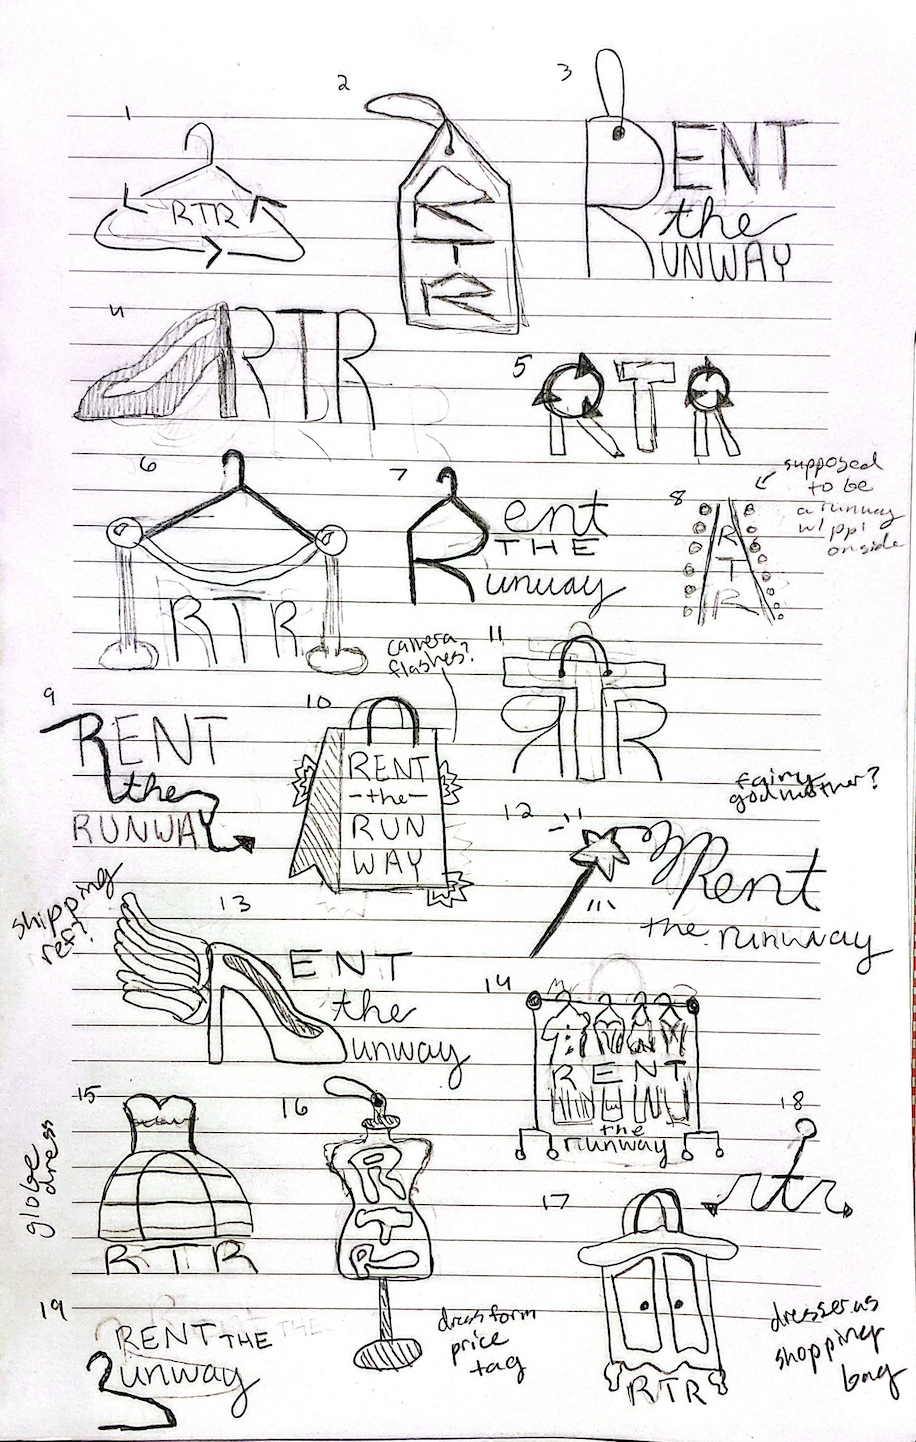 1
RTR
2
RTR
3
RENT
the
RUNWAY
4
RTR
5
RTR
6
RTR
7
Rent
THE
Runway
8
RTR
supposed
to be
a runway
w/ ppl
on side
9
RENT
the
RUNWAY
shipping
ref?
10
camera
flashes?
RENT
-the-
RUN
WAY
11
RTR
12
fairy
godmother?
Rent
the runway
13
ENT
the
unway
14
RENT
the
runway
15
globe
dress
RTR
16
RTR
dress form
price
tag
17
RTR
dresser as
shopping
bag
18
rtr
19
RENT THE
Runway